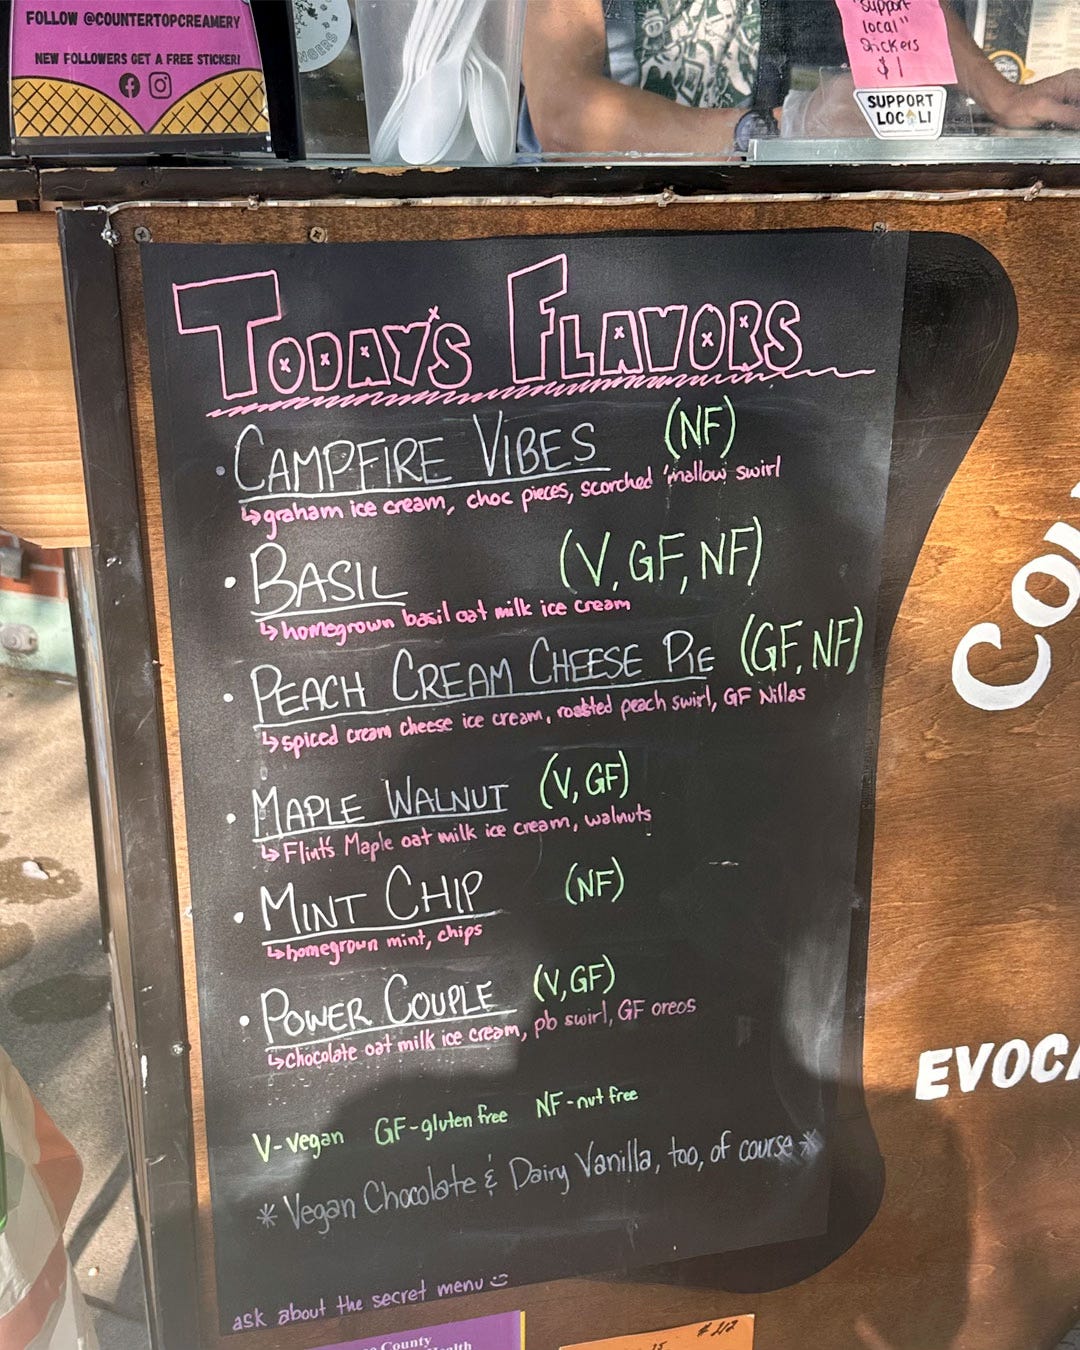 FOLLOW @COUNTERTOPCREAMERY
NEW FOLLOWERS GET A FREE STICKER!
"Support
local"
Stickers
$1
SUPPORT
LOCALI
TODAY'S FLAVORS
• CAMPFIRE VIBES (NF)
↳ graham ice cream, choc pieces, scorched 'mallow swirl
• BASIL (V, GF, NF)
↳ homegrown basil oat milk ice cream
• PEACH CREAM CHEESE PIE (GF, NF)
↳ spiced cream cheese ice cream, roasted peach swirl, GF Nillas
• MAPLE WALNUT (V, GF)
↳ Flint's Maple oat milk ice cream, walnuts
• MINT CHIP (NF)
↳ homegrown mint, chips
• POWER COUPLE (V, GF)
↳ chocolate oat milk ice cream, pb swirl, GF oreos
V-vegan GF-gluten free NF-nut free
* Vegan Chocolate & Dairy Vanilla, too, of course *
ask about the secret menu
County
# 212
15
EVOC